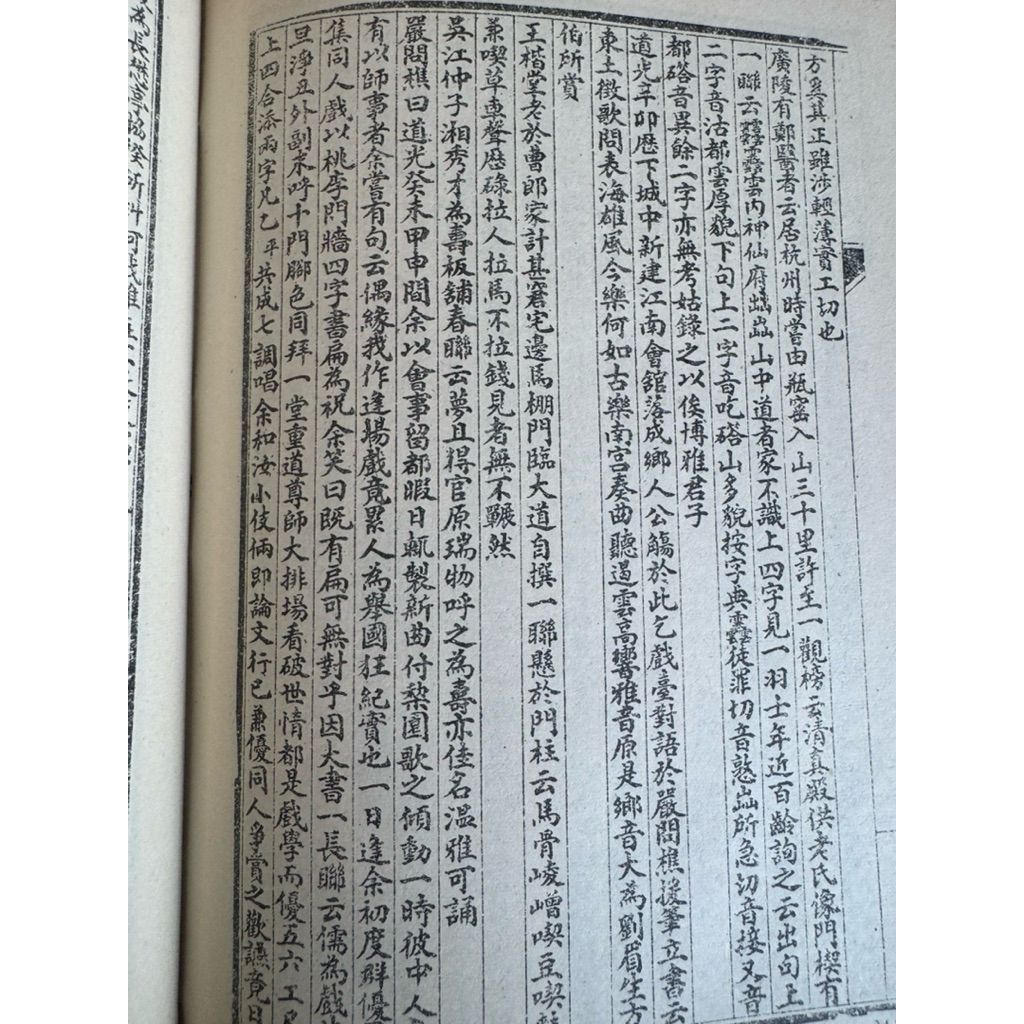 方爲其正雖涉輕薄實工切也
廣陵有鄭醫者云居杭州時嘗由瓶窰入山三十里許至一觀榜云清真殿供老氏像門楔有
一聯云靐䨺雲内神仙府山中道者家不識上四字見一羽士年近百齡詢之云出句上
二字音沽都雲厚貌下句上二字音吃㟷山多貌按字典䨺徒罪切音憝屾所急切音接又音
都㟷音異餘二字亦無考姑錄之以俟博雅君子
道光辛卯歷下城中新建江南會舘落成鄉人公觴於此乞戲臺對語於嚴問樵援筆立書云
東土徵歌問表海雄風今樂何如古樂南宮奏曲聽遏雲高響雅音原是鄉音大為劉眉生方
伯所賞
王楷堂老於曹郎家計甚窘宅邊馬棚門臨大道自撰一聯懸於門柱云馬骨崚嶒喫豆喫
兼喫草車聲歷碌拉人拉馬不拉錢見者無不囅然
吳江仲子湘秀才為壽板舖春聯云夢且得官原瑞物呼之為壽亦佳名溫雅可誦
嚴問樵曰道光癸未甲申間余以會事留都暇日輒製新曲付棃園歌之傾動一時彼中人
有以師事者余嘗有句云偶緣我作逢場戲竟累人為舉國狂紀實也一日逢余初度羣優
集同人戲以桃李門牆四字書扁為祝余笑曰既有扁可無對乎因大書一長聯云儒為戲
旦淨丑外副末呼十門腳色同拜一堂重道尊師大排場看破世情都是戲學而優五六工尺
上四合添兩字凡乙平共成七調唱余和汝小伎倆即論文行已兼優同人爭賞之歡讌竟日